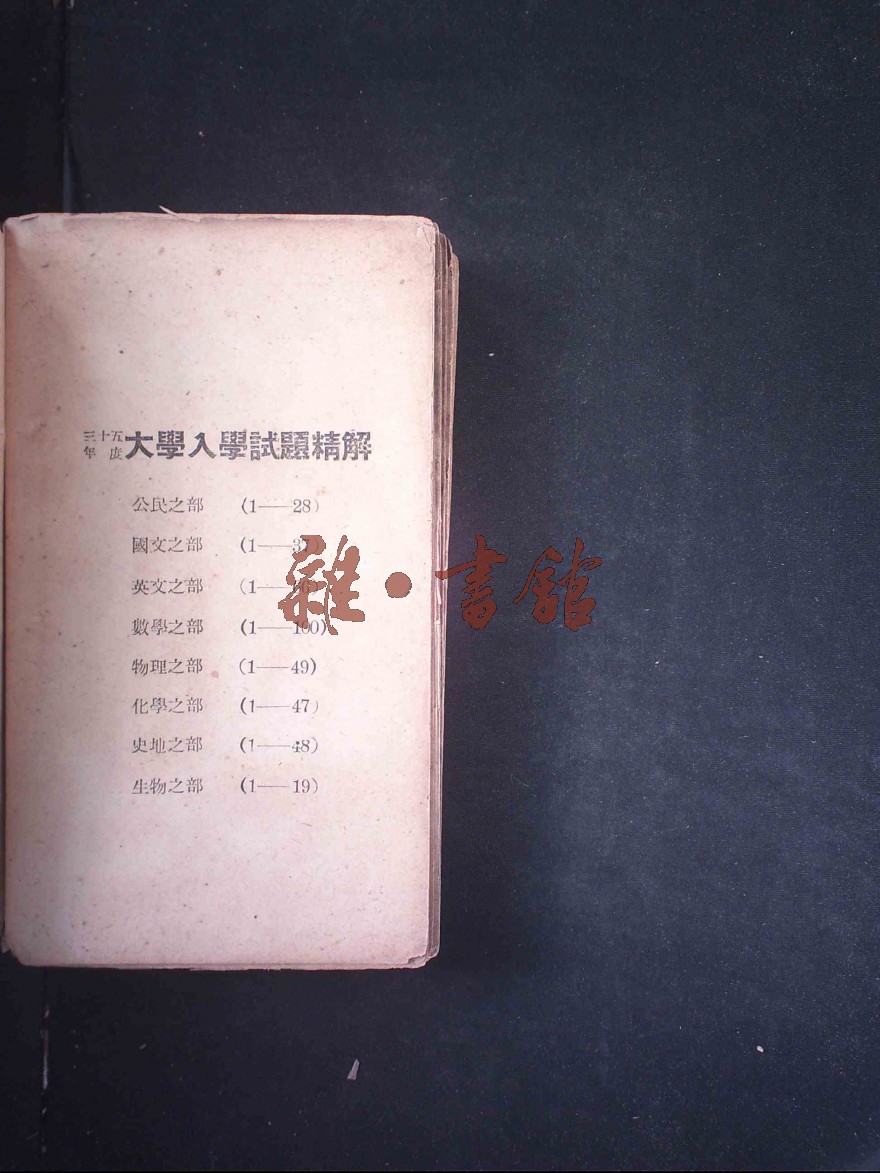 三十五年度大學入學試題精解
公民之部 (1——28)
國文之部 (1——
英文之部 (1——
數學之部 (1——100)
物理之部 (1——49)
化學之部 (1——47)
史地之部 (1——48)
生物之部 (1——19)
雜·書館